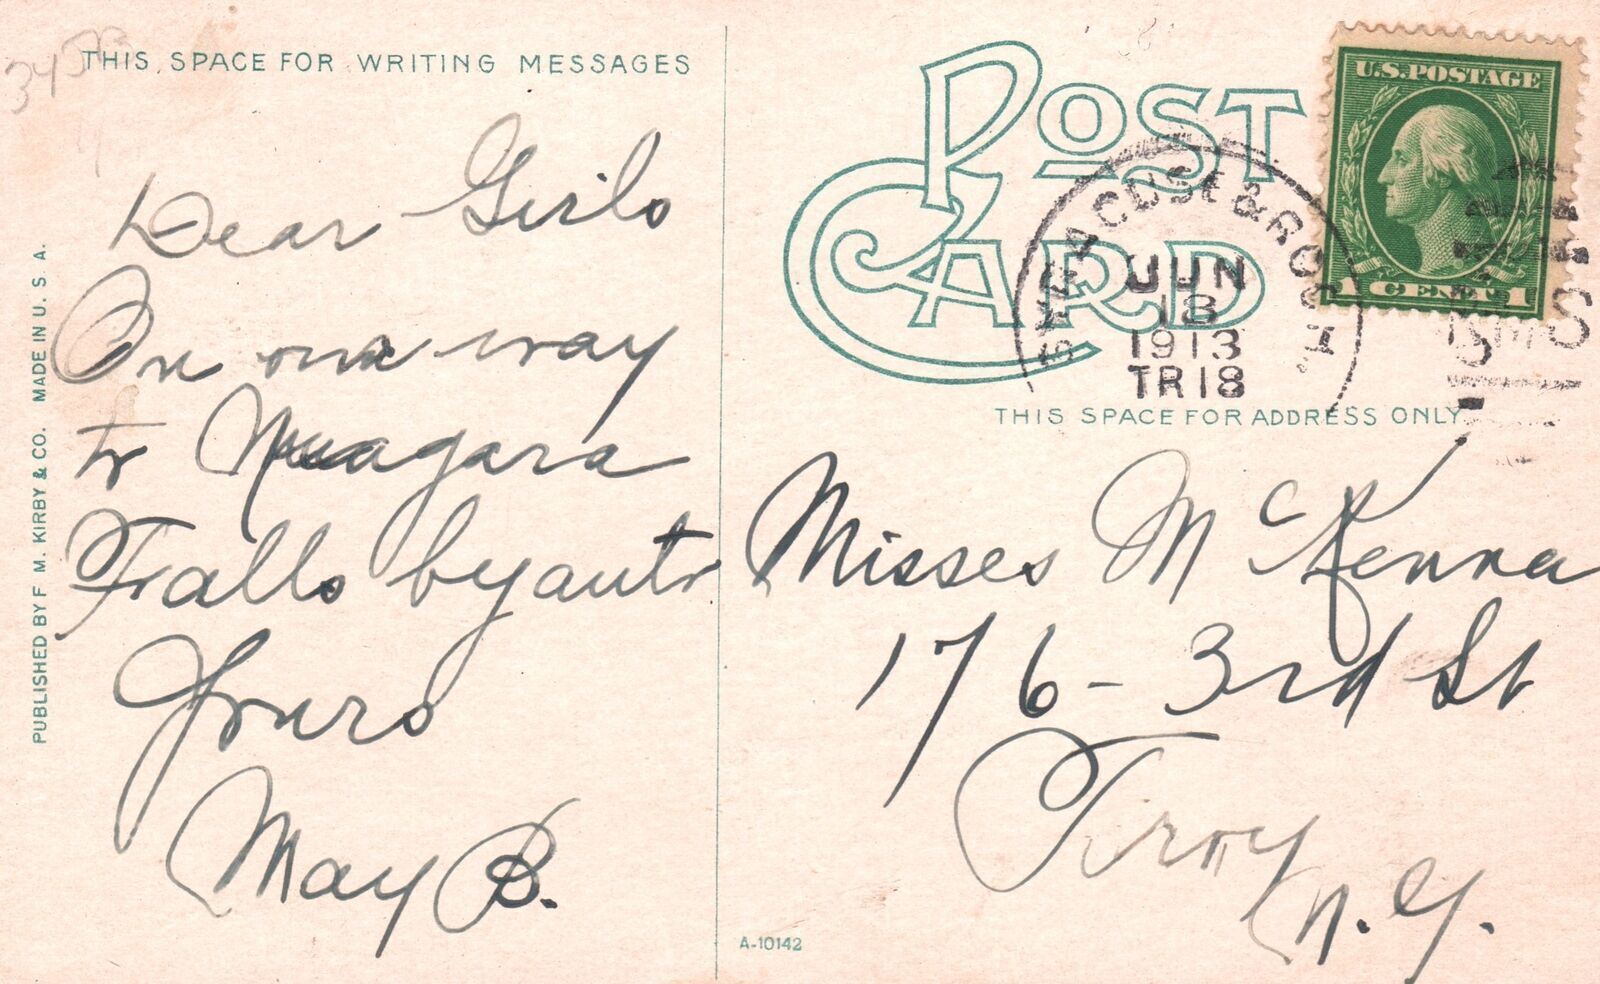 THIS SPACE FOR WRITING MESSAGES
Dear Girls
On our way
to Niagara
Falls by auto
Yours
May B.
PUBLISHED BY F. M. KIRBY & CO. MADE IN U. S. A.
POST
CARD
U.S. POSTAGE
1 CENT 1
SYRACUSE & ROCH.
JUN
13
1913
TR 18
THIS SPACE FOR ADDRESS ONLY
Misses McKenna
176 - 3rd St
Troy
N.Y.
A-10142